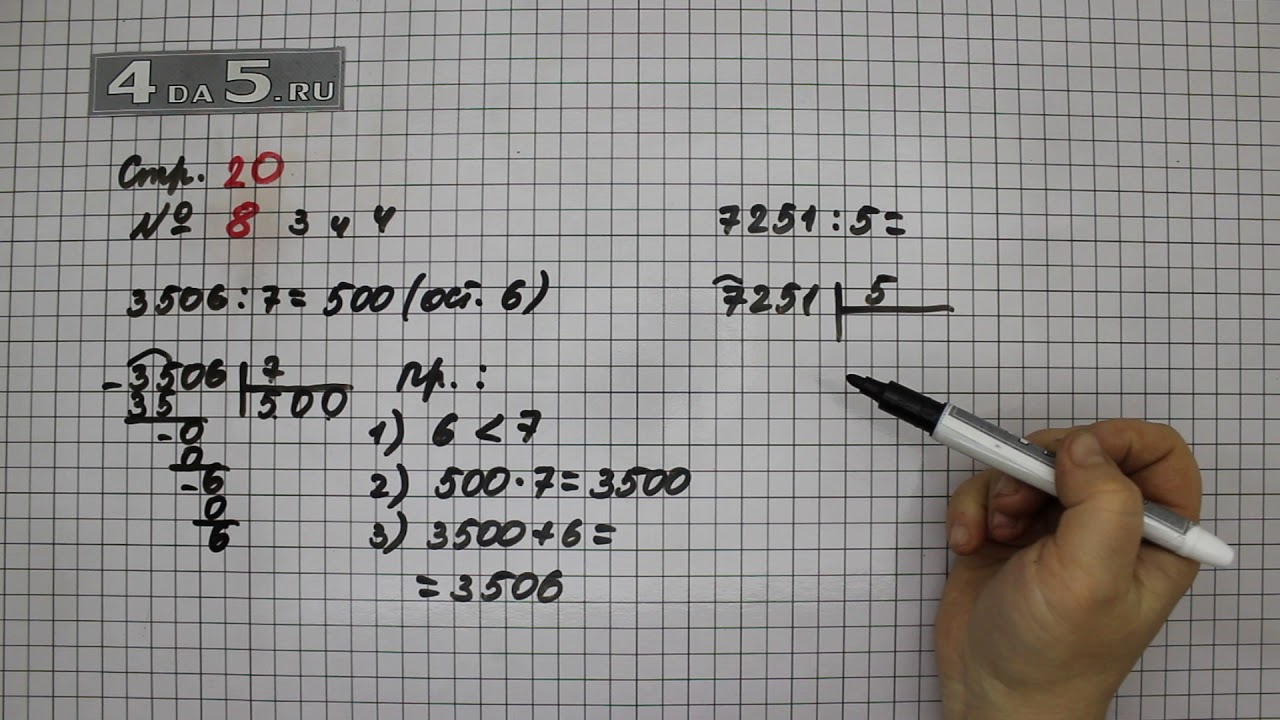 4DA5.RU
Стр. 20
№ 8 3 4 4
3506 : 7 = 500 (ост. 6)
- 3506 7
35 500
- 0
0
- 6
0
6
пр. :
1) 6 < 7
2) 500 · 7 = 3500
3) 3500 + 6 =
= 3506
7251 : 5 =
7251 5